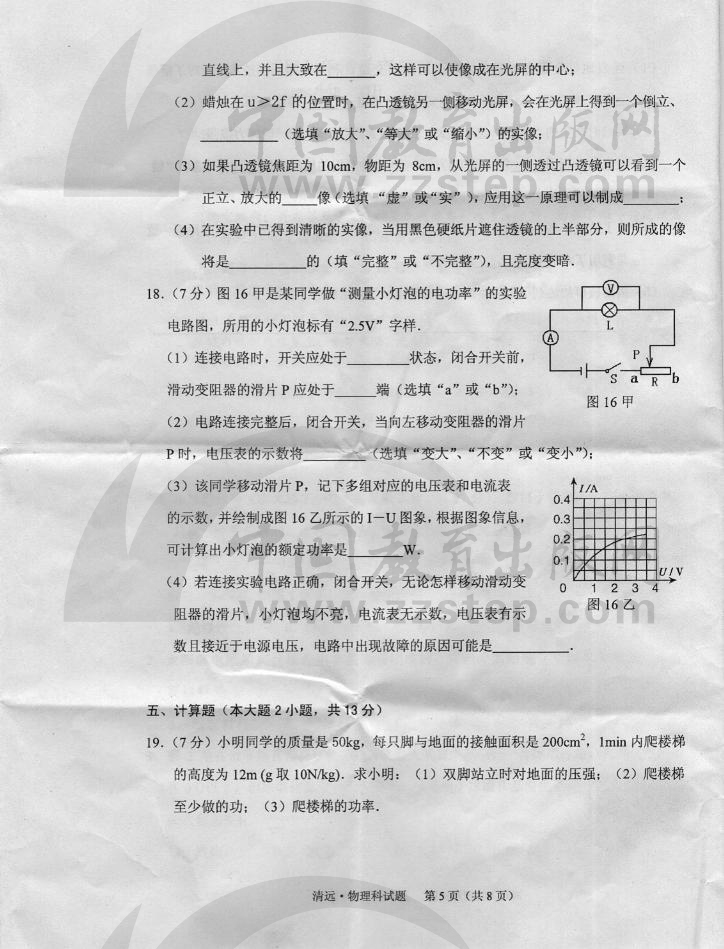 直线上，并且大致在______，这样可以使像成在光屏的中心；
（2）蜡烛在 u＞2f 的位置时，在凸透镜另一侧移动光屏，会在光屏上得到一个倒立、
__________（选填“放大”、“等大”或“缩小”）的实像；
（3）如果凸透镜焦距为 10cm，物距为 8cm，从光屏的一侧透过凸透镜可以看到一个
正立、放大的_____像（选填 “虚” 或“实” ），应用这一原理可以制成________；
（4）在实验中已得到清晰的实像，当用黑色硬纸片遮住透镜的上半部分，则所成的像
将是__________的（填“完整”或“不完整”），且亮度变暗．
18．（7 分）图 16 甲是某同学做“测量小灯泡的电功率”的实验
电路图，所用的小灯泡标有“2.5V”字样．
（1）连接电路时，开关应处于________状态，闭合开关前，
滑动变阻器的滑片 P 应处于_____端（选填“a”或“b”）；
（2）电路连接完整后，闭合开关，当向左移动变阻器的滑片
P 时，电压表的示数将________（选填“变大”、“不变”或“变小”）；
（3）该同学移动滑片 P，记下多组对应的电压表和电流表
的示数，并绘制成图 16 乙所示的 I－U 图象，根据图象信息，
可计算出小灯泡的额定功率是_______W．
（4）若连接实验电路正确，闭合开关，无论怎样移动滑动变
阻器的滑片，小灯泡均不亮，电流表无示数，电压表有示
数且接近于电源电压，电路中出现故障的原因可能是__________．
V
L
A
P
S a R b
图 16 甲
I/A
0.4
0.3
0.2
0.1
0 1 2 3 4
U/V
图 16 乙
五、计算题（本大题 2 小题，共 13 分）
19．（7 分）小明同学的质量是 50kg，每只脚与地面的接触面积是 200cm²，1min 内爬楼梯
的高度为 12m (g 取 10N/kg)．求小明：（1）双脚站立时对地面的压强；（2）爬楼梯
至少做的功；（3）爬楼梯的功率．
清远·物理科试题 第 5 页（共 8 页）
中国教育出版网
www.zzstep.com
中国教育出版网
www.zzstep.com